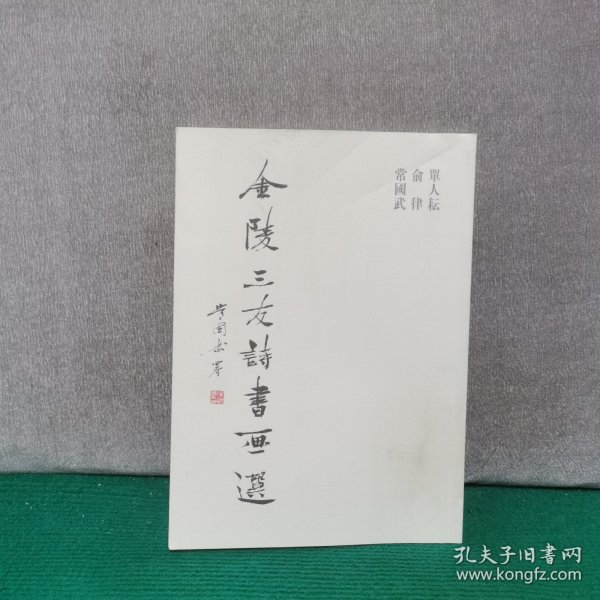 單人耘
俞律
常國武
金陵三友詩書画選
常國武署
孔夫子旧書网
www.kongfz.com